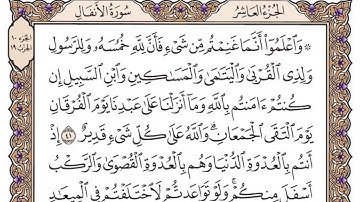 الجزء العاشر سورة الأنفال
الجزء ١٠
الحزب ١٩
۞ وَٱعْلَمُوٓا۟ أَنَّمَا غَنِمْتُم مِّن شَىْءٍ فَأَنَّ لِلَّهِ خُمُسَهُۥ وَلِلرَّسُولِ
وَلِذِى ٱلْقُرْبَىٰ وَٱلْيَتَـٰمَىٰ وَٱلْمَسَـٰكِينِ وَٱبْنِ ٱلسَّبِيلِ إِن
كُنتُمْ ءَامَنتُم بِٱللَّهِ وَمَآ أَنزَلْنَا عَلَىٰ عَبْدِنَا يَوْمَ ٱلْفُرْقَانِ
يَوْمَ ٱلْتَقَى ٱلْجَمْعَانِ ۗ وَٱللَّهُ عَلَىٰ كُلِّ شَىْءٍ قَدِيرٌ ٤١ إِذْ
أَنتُم بِٱلْعُدْوَةِ ٱلدُّنْيَا وَهُم بِٱلْعُدْوَةِ ٱلْقُصْوَىٰ وَٱلرَّكْبُ
أَسْفَلَ مِنكُمْ ۚ وَلَوْ تَوَاعَدتُّمْ لَٱخْتَلَفْتُمْ فِى ٱلْمِيعَـٰدِ